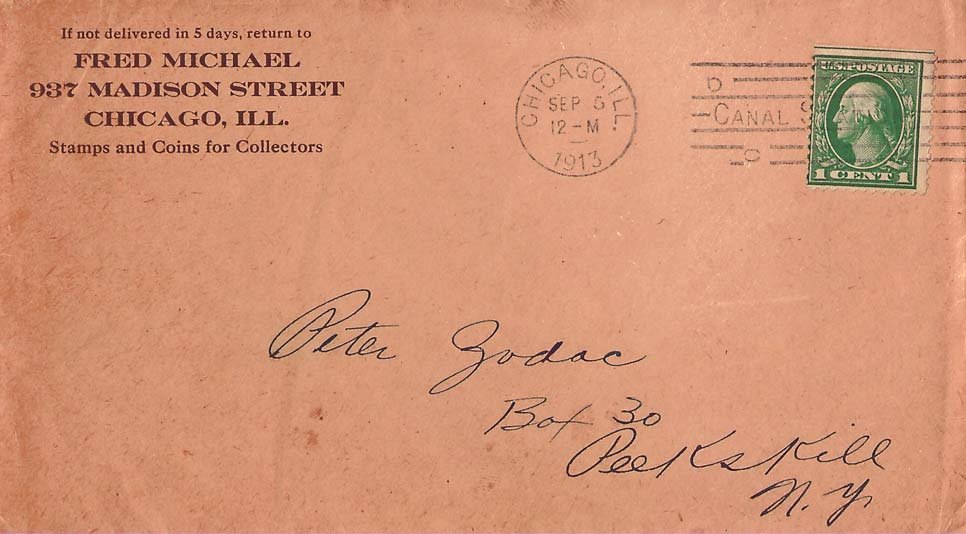 If not delivered in 5 days, return to
FRED MICHAEL
937 MADISON STREET
CHICAGO, ILL.
Stamps and Coins for Collectors
CHICAGO, ILL.
SEP 5
12-M
1913
CANAL S
U.S. POSTAGE
1 CENT 1
Peter Zodac
Box 30
Peekskill
N.Y.